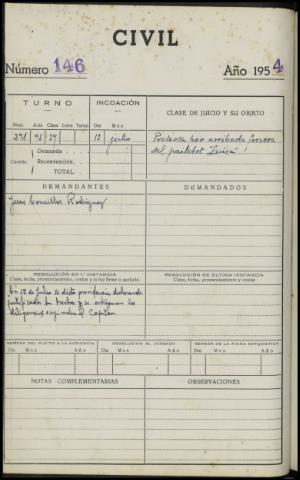 CIVIL
Número 146 Año 1954
TURNO INCOACIÓN CLASE DE JUICIO Y SU OBJETO
Núm. Acta Clase Letra Turno Día Mes
12 julio Protesta por arribada forzosa
del pailebot "Luisa"
Demanda
Cuantía Reconvención
TOTAL
DEMANDANTES DEMANDADOS
Rodríguez
RESOLUCIÓN EN 1.ª INSTANCIA RESOLUCIÓN DE ÚLTIMA INSTANCIA
Clase, fecha, pronunciamiento, costas y si fué firme o apelada. Clase, fecha, pronunciamiento y costas
En 12 de Julio se dictó providencia declarando
justificado los hechos y se entregaron las
diligencias originales al Capitán.
REMESA DEL PLEITO A LA AUDIENCIA DEVOLUCIÓN AL JUZGADO REMESA DE LA FICHA ESTADÍSTICA
Día Mes Año Día Mes Año Día Mes Año
NOTAS COMPLEMENTARIAS OBSERVACIONES